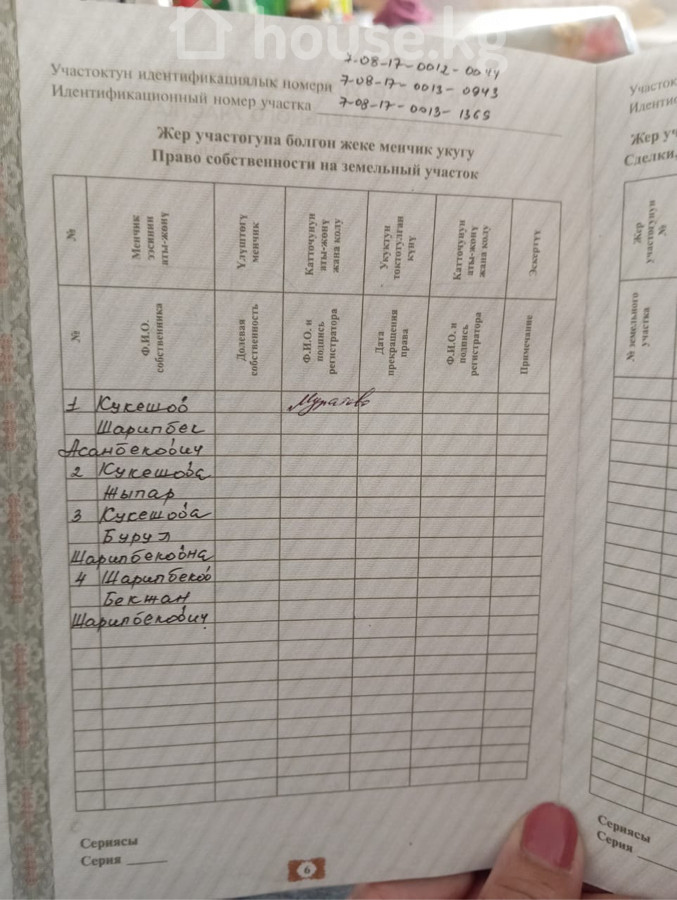 house.kg
7-08-17-0012-0044
Участоктун идентификациялык номери 7-08-17-0013-0943
Идентификационный номер участка 7-08-17-0013-1365
Жер участогуна болгон жеке менчик укугу
Право собственности на земельный участок
№
Менчик ээсинин аты-жөнү
Үлүштөгү менчик
Каттоочунун аты-жөнү жана колу
Укуктун токтотулган күнү
Каттоочунун аты-жөнү жана колу
Эскертүү
№
Ф.И.О. собственника
Долевая собственность
Ф.И.О. и подпись регистратора
Дата прекращения права
Ф.И.О. и подпись регистратора
Примечание
1 Кукешов
Шарипбек
Асанбекович
2 Кукешова
Жыпар
3 Кукешова
Бурул
Шарипбековна
4 Шарипбеков
Бекжан
Шарипбекович
Сериясы
Серия
6
Участок
Иденти
Жер уч
Сделки,
Жер участогунун №
№ земельного участка
Сериясы
Серия